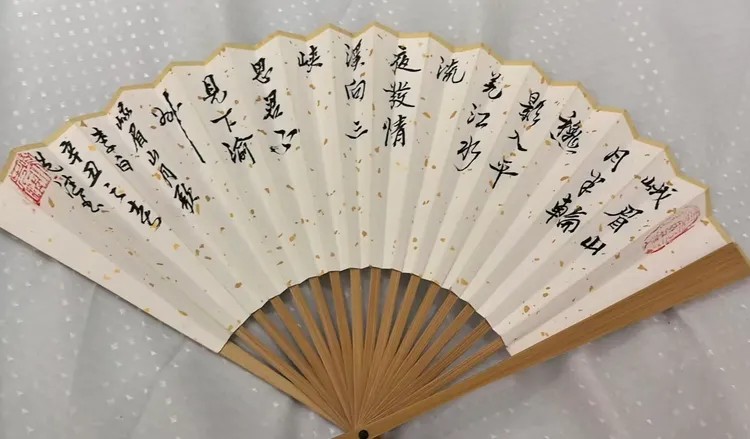 峨眉山
月半輪
穐
影入平
羌江水
流
夜發情
溪向三
峽
思君不
見下渝
州
峨眉山月歌
李白
辛丑之春